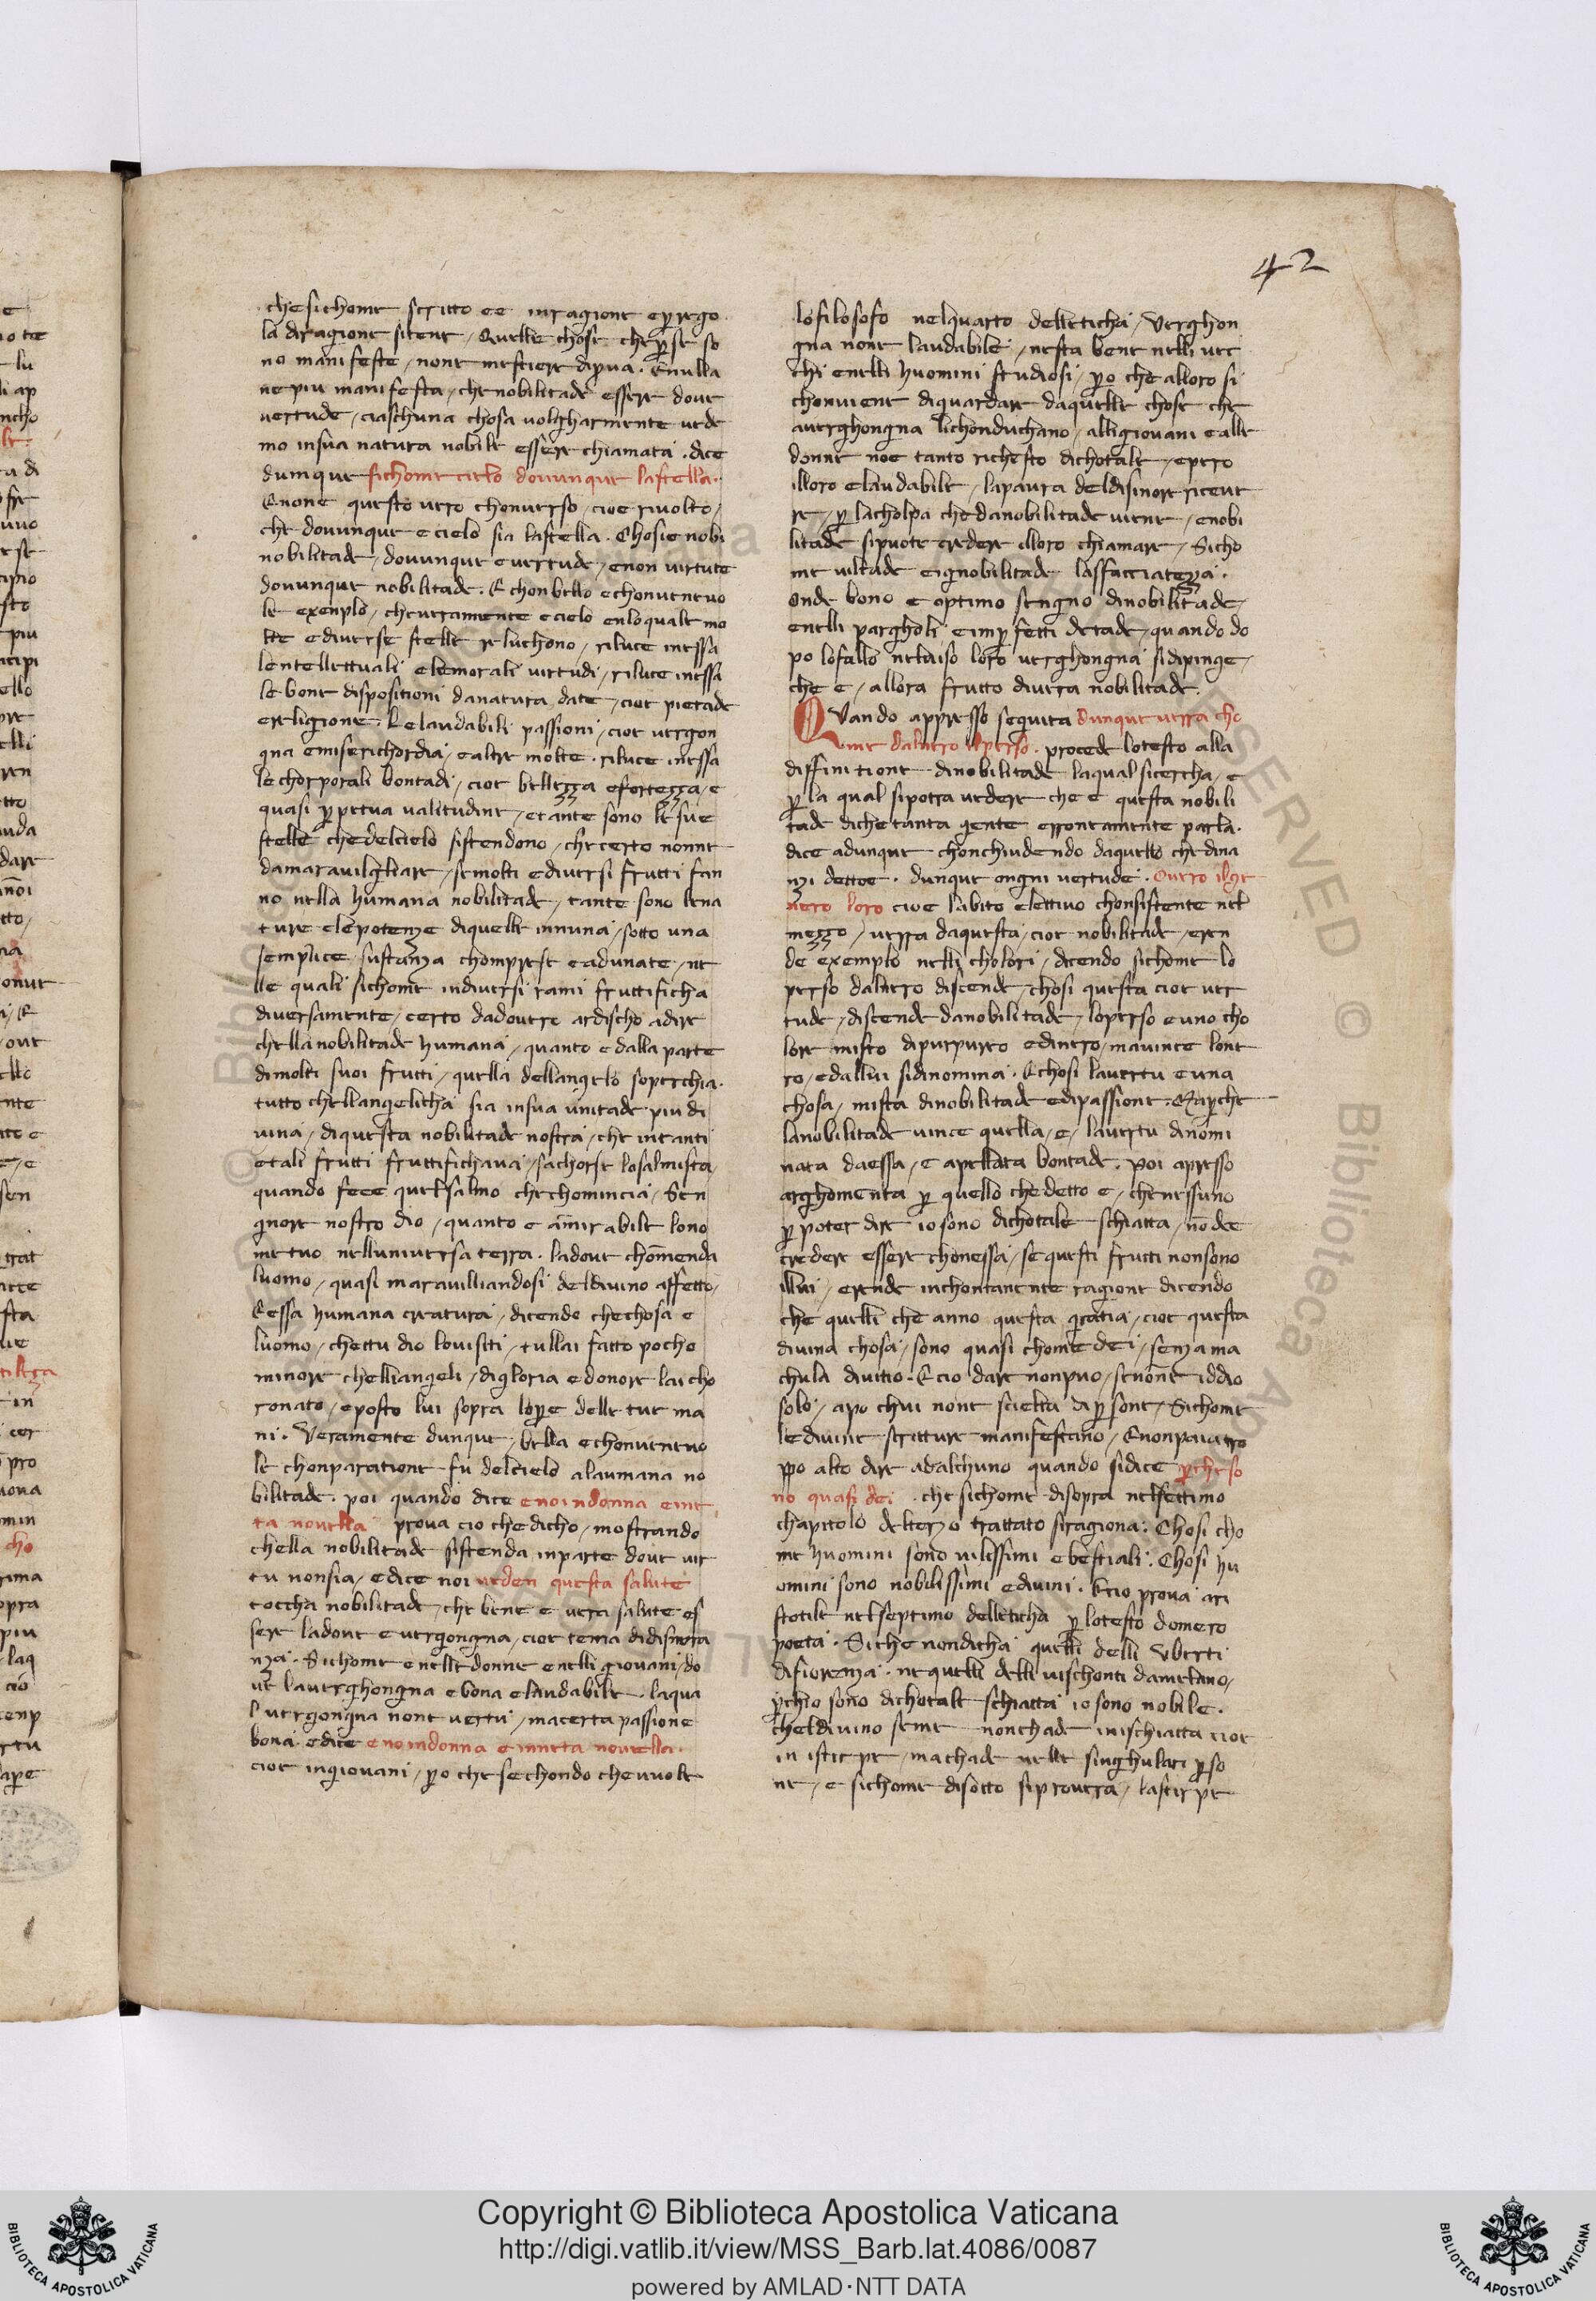 42
che sichome scritto ee inragione eper rego
la diragione sitene / Quelle chose che per se so
no manifeste / none mestiere dipua . Enulla
ne piu manifesta / che nobilitade essere doue
vertude / ciaschuna chosa volgharmente vede
mo insua natura nobile essere chiamata . dice
dumque sichome cielo dovunque lastella .
Enone questo vero chonverso / cioe rivolto /
che dovunque e cielo sia lastella . Chosie nobi
nobilitade / dovunque e vertude / enon virtute
dovunque nobilitade . E chon bello echonvenevo
le exenplo / che veramente e cielo enlo quale mo
lte e diverse stelle reluchono / riluce inessa
lentellettuali elemorali virtudi / riluce inessa
le bone dispositioni danatura date / cioe pietade
ereligione . Le laudabili passioni / cioe vergon
gna emiserichordia / ealtre molte . riluce inessa
le chorporali bontadi / cioe bellezza efortezza / e
quasi perpetua valitudine / etante sono le sue
stelle che delcielo sistendono / che certo nonne
damaravilgliare / semolti ediversi frutti fan
no nella humana nobilitade / tante sono lena
ture elepotenze diquelle innuna / sotto una
semplice sustanza chomprese eadunate / ne
lle quali sichome indiversi rami fruttificha
diversamente / certo dadovero ardischo adire
chella nobilitade humana / quanto e dalla parte
dimolti suoi frutti / quella dellangelo soperchia .
tutto chellangelicha sia insua unitade piu di
vina / diquesta nobilitade nostra / che intanti
etali frutti fruttifichava / sachorse losalmista /
quando fece quel salmo che chomincia / Sen
gnore nostro dio / quanto e amirabile lono
me tuo nelluniversa terra . ladove chomenda
luomo / quasi maravilliandosi deldivino affetto /
Eessa humana creatura / dicendo chechosa e
luomo / chettu dio lovisiti / tullai fatto pocho
minore chelliangeli / digloria edonore lai cho
ronato / eposto lui sopra lopere delle tue ma
ni . Veramente dunque / bella echonvenevo
le chonparatione fu delcielo alaumana no
bilitade . poi quando dice enoi ndonna einne
ta novella prova cio chedicho / mostrando
chella nobilitade sistenda inparte dove vir
tu nonsia / edice noi veden questa salute
toccha nobilitade / che bene e vera salute es
sere ladove e vergongna / cioe tema didisnora
nza . Sichome enelle donne enelli giovani / do
ve laverghongna ebona elaudabile . laqua
l vergongna none vertu / macerta passione
bona . edice enoindonna einneta novella .
cioe ingiovani / pero che sechondo che vuole
lofilosofo nelquarto delleticha / verghon
gna none laudabile / nesta bene nelli vec
chi enelli huomini studiosi / pero che alloro si
chonviene diguardare daquelle chose che
averghongna lichonduchano / alligiovani ealle
donne noe tanto richesto dichotale / epero
illoro elaudabile / lapaura deldisinore riceve
re / per lacholpa che danobilitade viene / enobi
litade sipuote credere illoro chiamare / Sicho
me viltade eignobilitade lassfacciatezza .
onde bono e optimo sengno dinobilitade /
enelli pargholi eimperfetti detade / quando do
po lofallo nelaiso loro verghongna sidipinge /
che e / allora frutto divera nobilitade .
Quando appresso seguita dunque verra cho
me dalnero ilperso . procede lotesto alla
diffinitione dinobilitade laqual sicercha / e
per la qual sipotra vedere che e questa nobili
tade diche tanta gente erroneamente parla .
dice adunque chonchiudendo daquello che dina
nzi dettoe . dunque ongni vertude . Overo ilge
nero loro cioe labito elettivo chonsistente nel
mezzo / verra daquesta / cioe nobilitade / eren
de exemplo nelli cholori / dicendo sichome lo
perso dalnero discende / chosi questa cioe ver
tude / discende danobilitade / loperso e uno cho
lore misto dipurpureo edinero / mavince lone
ro / edallui sidinomina . Echosi lavertu e una
chosa / mista dinobilitade edipassione . Ma perche
lanobilitade vince quella / e / lavertu dinomi
nata daessa / e apellata bontade . poi apresso
arghomenta per quello chedetto e / chenessuno
per poter dire io sono dichotale schiatta / no dee
credere essere chonessa / se questi frutti nonsono
illui / erende inchontanente ragione dicendo
che quelli che anno questa gratia / cioe questa
divina chosa / sono quasi chome dei / senza ma
chula divitio . Ecio dare nonpuo / senone iddio
solo / apo chui none scielta di persone / Sichome
ledivine scritture manifestano / Enonpaia tro
ppo alto dire adalchuno quando sidice perche so
no quasi dei . che sichome disopra nelsettimo
chapitolo delterzo trattato siragiona . Chosi cho
me huomini sono vilissimi ebestiali . Chosi hu
omini sono nobilissimi edivini . Ecio prova ari
stotile nelseptimo delleticha per lotesto domero
poeta . Siche nondicha quelli delli Uberti
difiorenza . ne quelli delli vischonti damelano /
perchio sono dichotale schiatta io sono nobile .
cheldivino seme nonchade inischiatta cioe
in istirpe / machade nelle singhulari perso
ne / e sichome disotto siprovera / lastirpe
Copyright © Biblioteca Apostolica Vaticana
http://digi.vatlib.it/view/MSS_Barb.lat.4086/0087
powered by AMLAD·NTT DATA
BIBLIOTECA APOSTOLICA VATICANA
BIBLIOTECA APOSTOLICA VATICANA